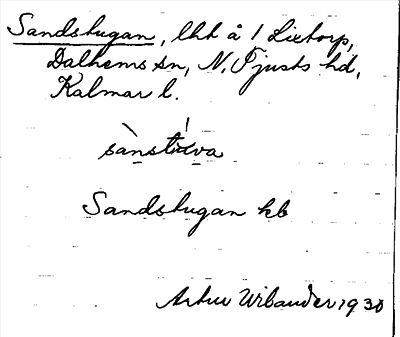 Sandstugan, lht å / Lixtorp,
Dalhems sn, N. Tjusts hd,
Kalmar l.
sànstuva
Sandstugan kb
Artur Wilander 1930